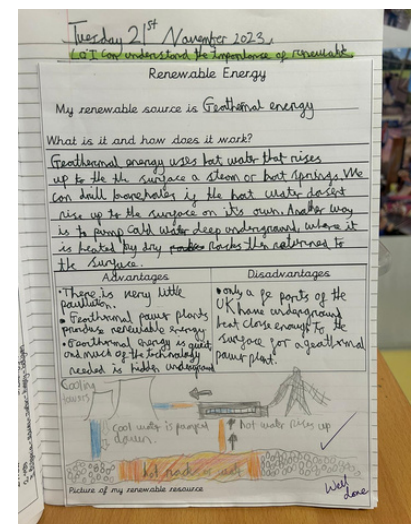 Tuesday 21st November 2023.
LO: I can understand the importance of renewable
Renewable Energy
My renewable source is Geothermal energy
What is it and how does it work?
Geothermal energy uses hot water that rises
up to the the surface a steam or hot springs. We
can drill boreholes if the hot water dosent
rise up to the surface on it's own. Another way
is to pump cold water deep underground, where it
is heated by dry rocks then returned to
the surface.
Advantages
• There is very little
poullution.
• Geothermal pawr plants
produse renewable energy
• Geonthermal energy is quiet
and much of the technology
needed is hidden underground
Disadvantages
• only a fe parts of the
UK have underground
heat close enough to the
surface for a geathermal
pawr plant.
Cooling
towers
cool water is pumped
down.
hot water rises up
hot rocks
Picture of my renewable resource
Well
done